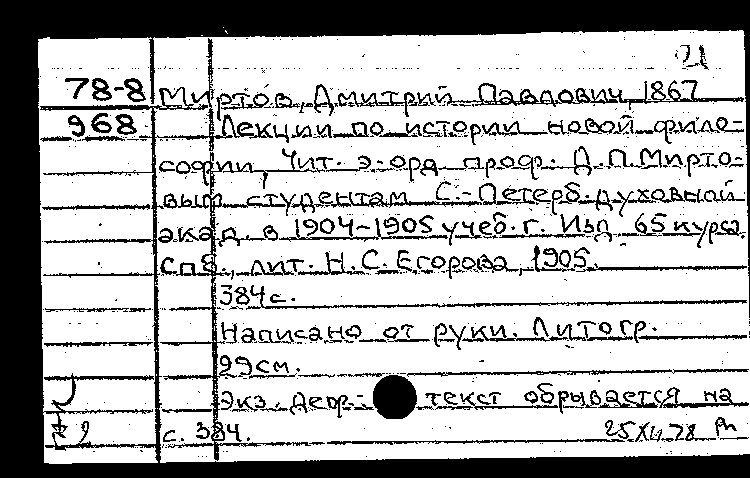 21
78-8 Миртов, Дмитрий Павлович, 1867
968 Лекции по истории новой фило-
софии, Чит. э.-орд проф. Д.П.Мирто-
вым студентам С.-Петерб. духовной
акад. в 1904-1905 учеб. г. Изд 65 курса
Спб., лит. Н.С. Егорова, 1905.
384 с.
Написано от руки. Литогр.
29 см.
Экз. деф.: текст обрывается на
2 с. 384. 25 XII 78